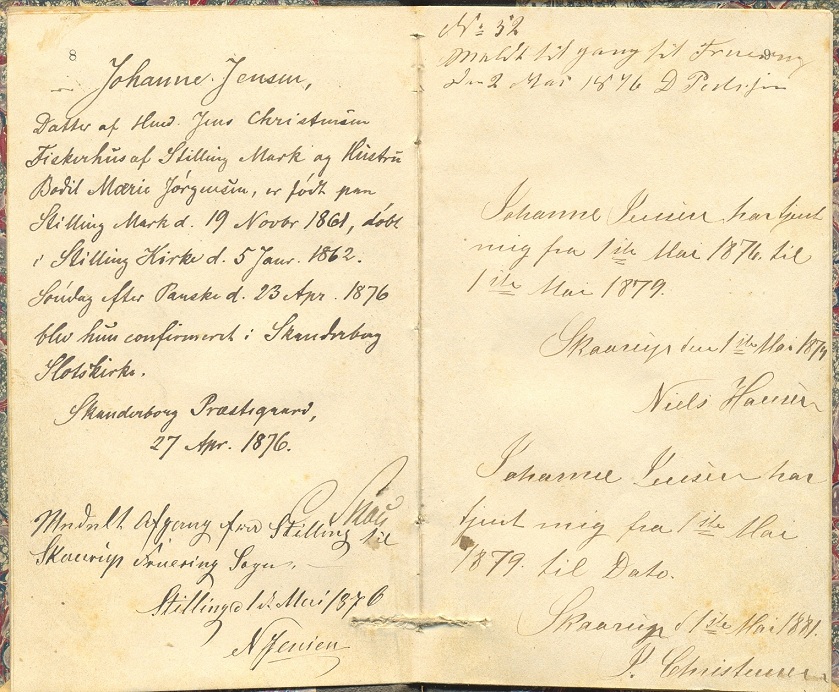 8
Johanne Jensen,
Datter af Hmd. Jens Christensen
Fiskerhus af Stilling Mark og Hustru
Bodil Marie Jørgensen, er født paa
Stilling Mark d. 19 Novbr 1861, døbt
i Stilling Kirke d. 5 Janr. 1862.
Søndag efter Paaske d. 23 Apr. 1876
blev hun confirmeret i Skanderborg
Slotskirke.
Skanderborg Præstegaard,
27 Apr. 1876.
Meldt Afgang fra Stilling til
Skaarup Fruering Sogn.
Stilling d 1 Mai 1876
N Jensen
9
No 52
Meldt til gang til Fruering
den 2 Mai 1876 D Pedersen
Johanne Jensen har tjent
mig fra 1ste Mai 1876 til
1ste Mai 1879.
Skaarup den 1ste Mai 1879
Niels Hansen
Johanne Jensen har
tjent mig fra 1ste Mai
1879. til Dato.
Skaarup d 1ste Mai 1881.
J. Christensen